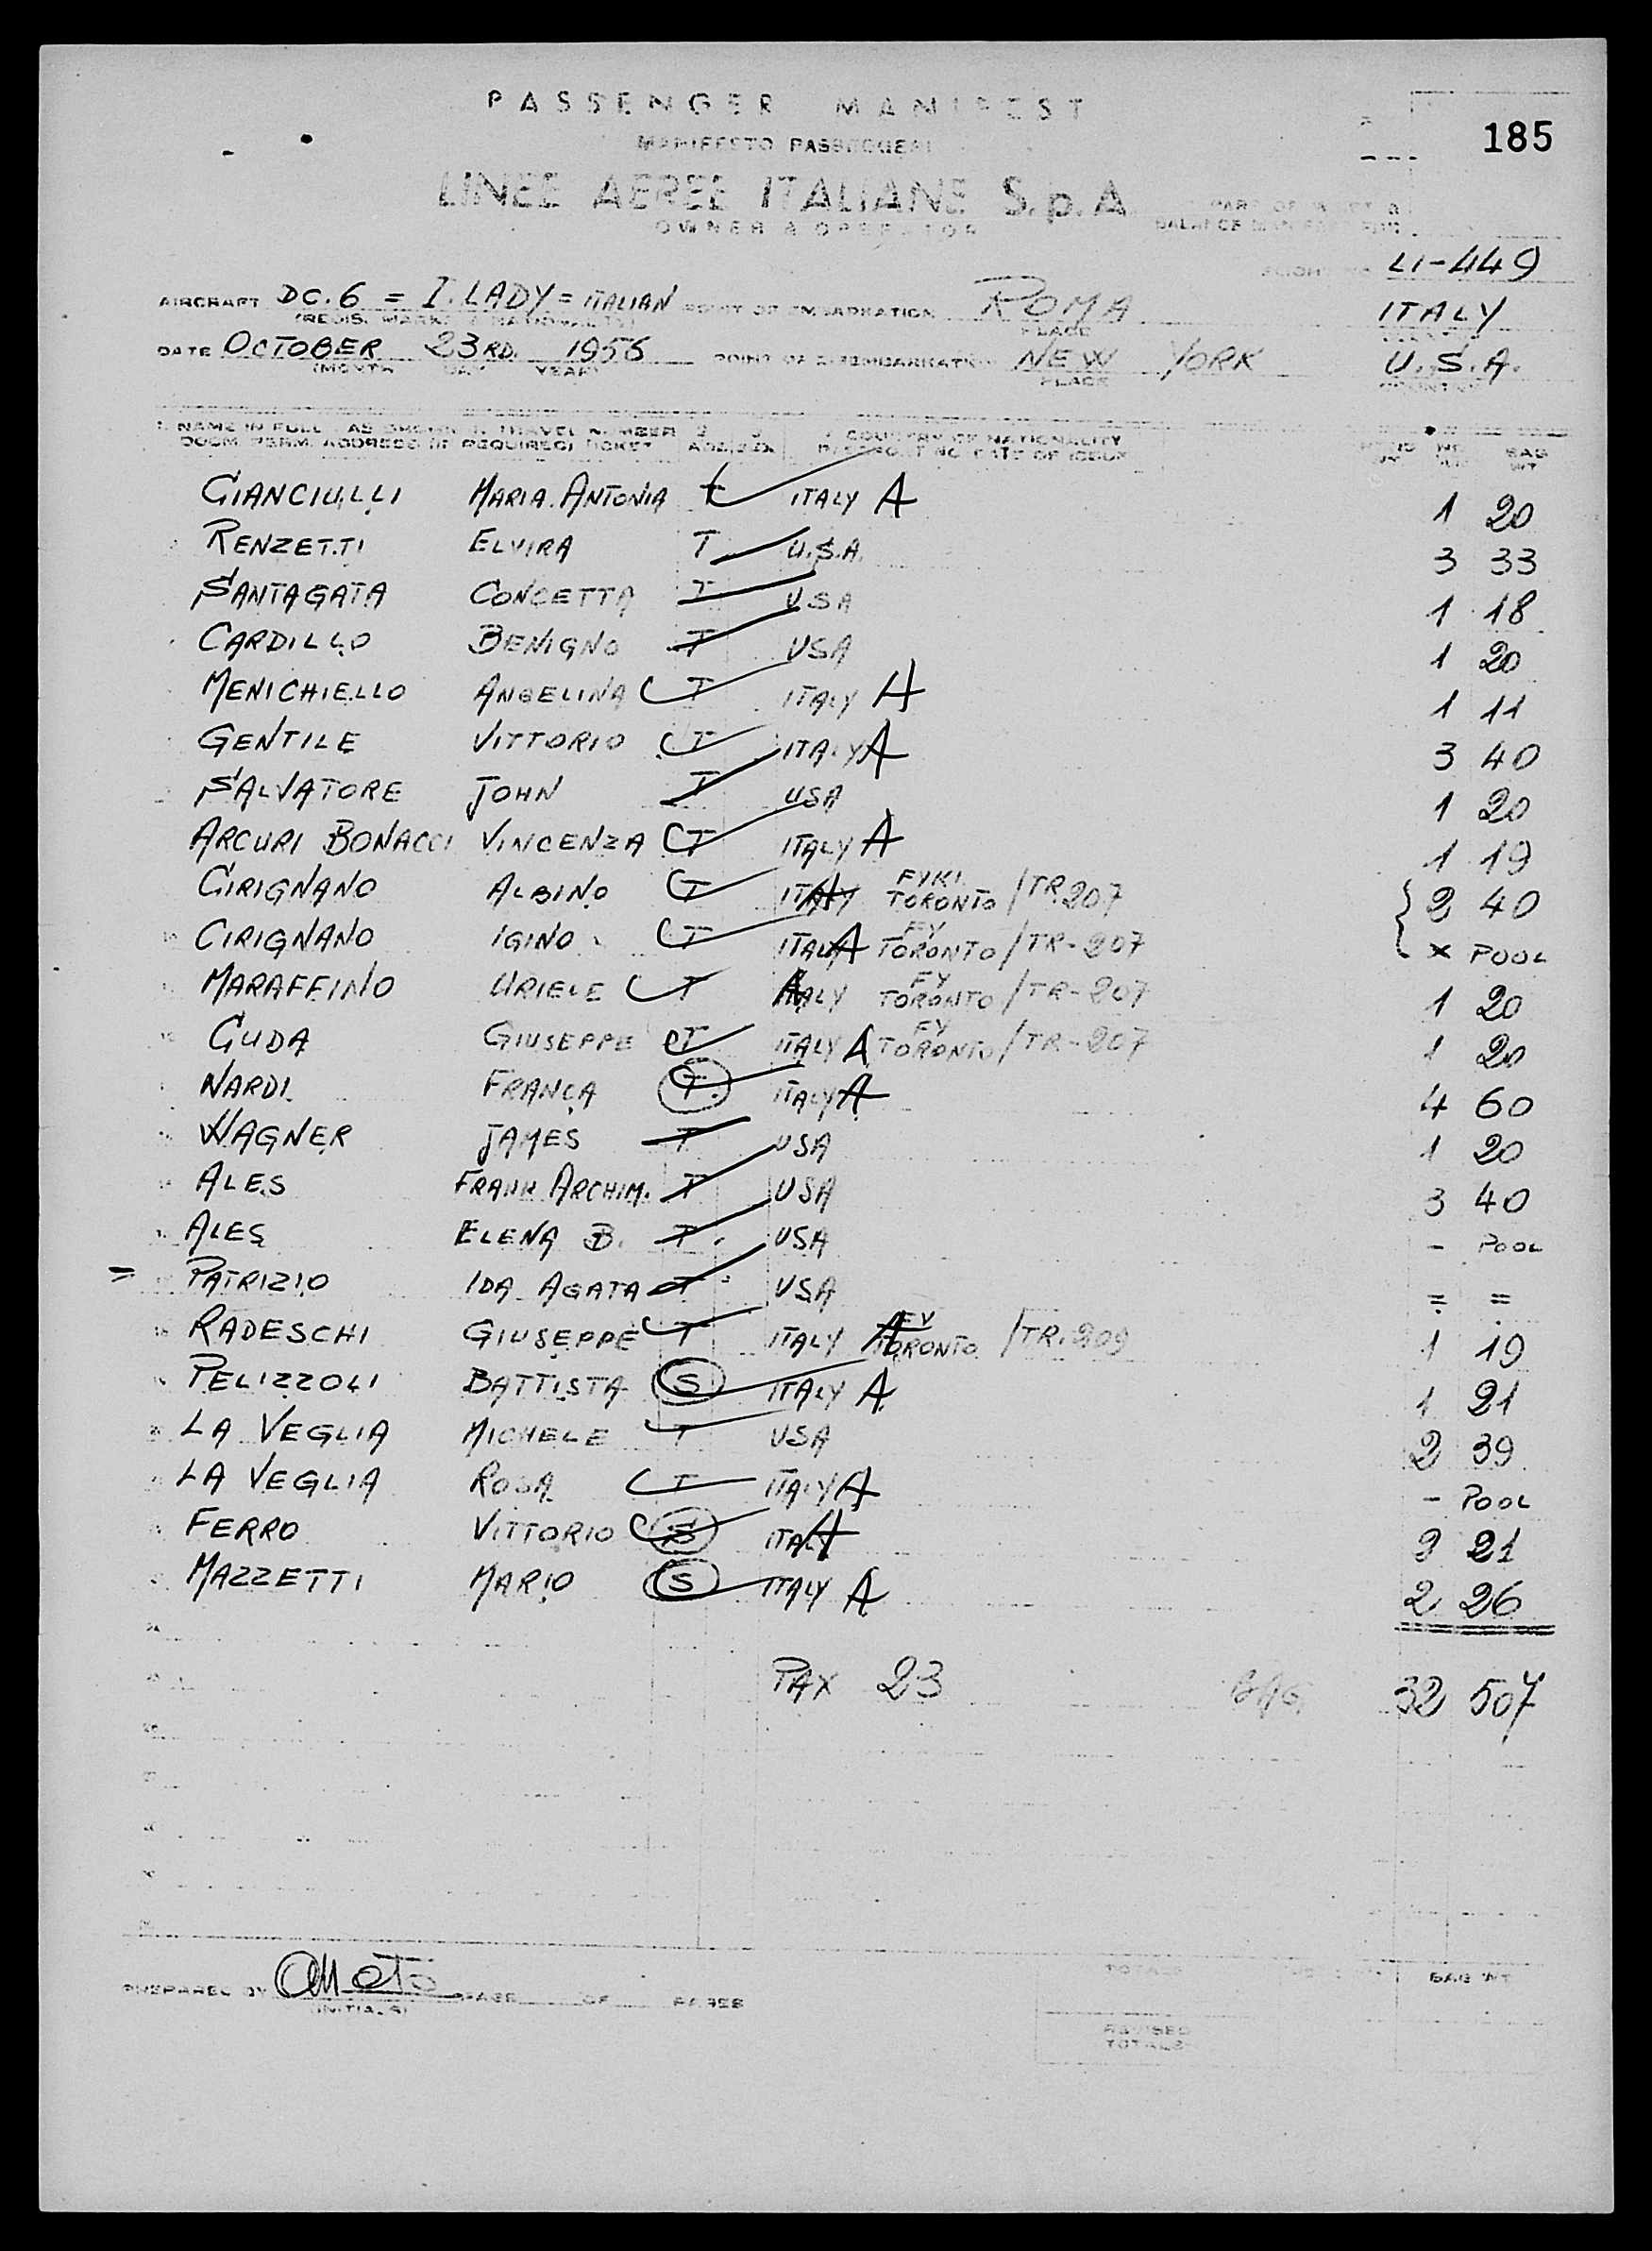 PASSENGER MANIFEST
MANIFESTO PASSEGGERI
185
LINEE AEREE ITALIANE S.p.A.
OWNER & OPERATOR
LI-449
AIRCRAFT DC.6 = I.LADY = ITALIAN POINT OF EMBARKATION ROMA ITALY
(REGIS. MARKS & NATIONALITY) PLACE
DATE OCTOBER 23RD. 1956 POINT OF DISEMBARKATION NEW YORK U.S.A.
(MONTH DAY YEAR) PLACE
1. NAME IN FULL AS SHOWN IN TRAVEL NUMBER COUNTRY OF NATIONALITY
DOCM. PERM. ADDRESS (IF REQUIRED) TICKET AGE SEX DATE OF ISSUE BAG WT
GIANCIULLI MARIA.ANTONIA t ITALY A 1 20
RENZETTI ELVIRA T U.S.A. 3 33
SANTAGATA CONCETTA T USA 1 18
CARDILLO BENIGNO T USA 1 20
MENICHIELLO ANGELINA T ITALY A 1 11
GENTILE VITTORIO T ITALY A 3 40
SALVATORE JOHN T USA 1 20
ARCURI BONACCI VINCENZA T ITALY A 1 19
CIRIGNANO ALBINO T ITALY TORONTO /TR.207 2 40
CIRIGNANO IGINO T ITALY A FY TORONTO /TR-207 x POOL
MARAFFINO URIELE T ITALY FY TORONTO /TR-207 1 20
GUDA GIUSEPPE T ITALY A FY TORONTO /TR-207 1 20
NARDI FRANCA T. ITALY A 4 60
WAGNER JAMES T USA 1 20
ALES FRANK ARCHIM. T USA 3 40
ALES ELENA B. T. USA - POOL
= PATRIZIO IDA AGATA T USA = =
RADESCHI GIUSEPPE T ITALY A FY TORONTO /TR.209 1 19
PELIZZOLI BATTISTA S ITALY A 1 21
LA VEGLIA MICHELE T USA 2 39
LA VEGLIA ROSA T ITALY A - POOL
FERRO VITTORIO S ITALY A 2 21
MAZZETTI MARIO S ITALY A 2 26
PAX 23 BAG. 32 507
PREPARED BY PAGE OF PAGES TOTALS BAG WT
(INITIALS)
REVISED
TOTALS